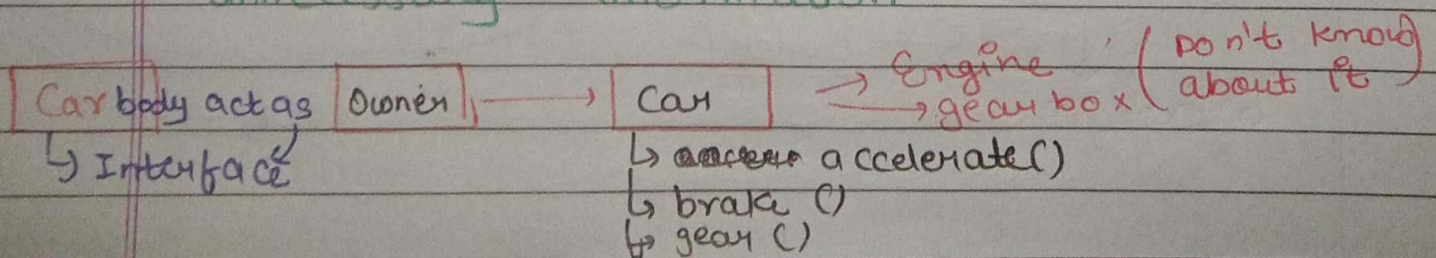 Car body act as Owner → Car → Engine (Don't know
→ gear box about it)
↳ Interface ↳ accelerate()
↳ brake ()
↳ gear ()